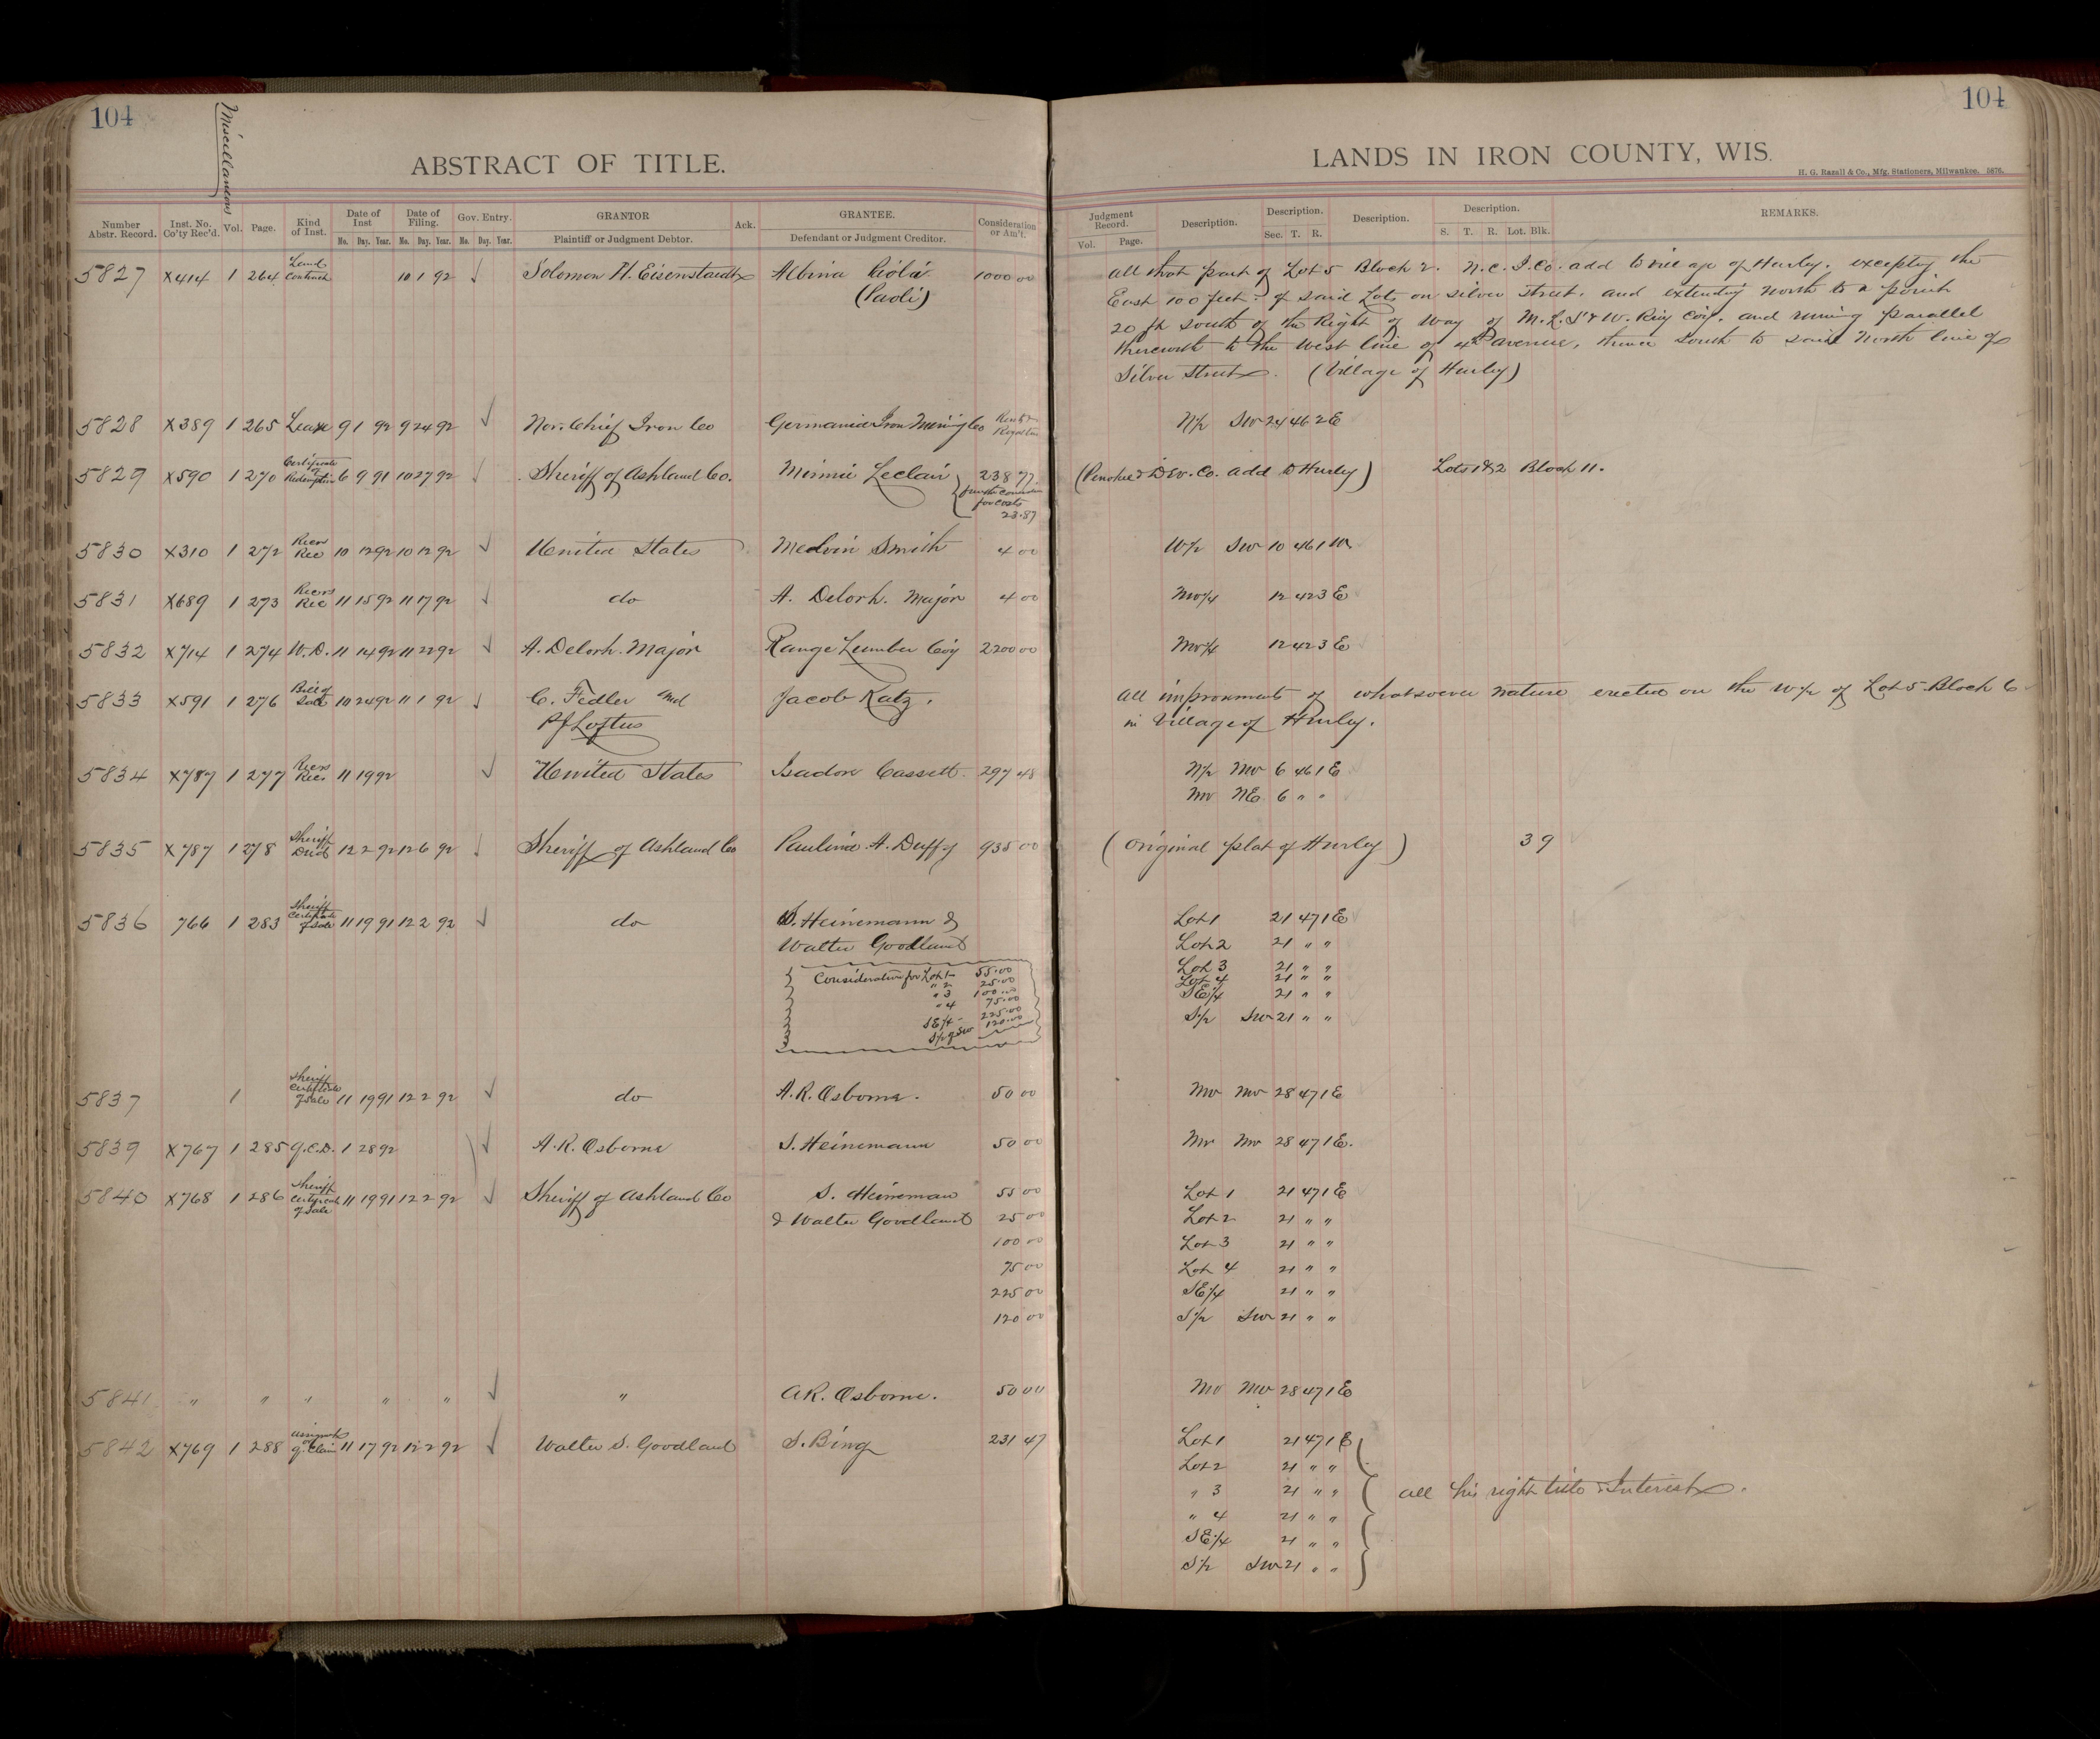 104
Miscellaneous
ABSTRACT OF TITLE.
Number Abstr. Record. Inst. No. Co'ty Rec'd. Vol. Page. Kind of Inst. Date of Inst Mo. Day. Year. Date of Filing. Mo. Day. Year. Gov. Entry. Mo. Day. Year. GRANTOR Plaintiff or Judgment Debtor. Ack. GRANTEE. Defendant or Judgment Creditor. Consideration or Am't.
5827 X414 1 264 Land Contract 10 1 92 ✓ Solomon H. Eisenstaedt Albina
(Paoli) 1000 00
5828 X389 1 265 Lease 9 1 92 9 24 92 ✓ Nor. Chief Iron Co Germania Iron Mining Co
5829 X590 1 270 Certificate of Redemption 6 9 91 10 27 92 ✓ Sheriff of Ashland Co. Minnie Leclair 238 77
for costs
23.87
5830 X310 1 272 Recrs Rec 10 12 92 10 12 92 ✓ United States Medvin Smith 4 00
5831 X689 1 273 Recrs Rec 11 15 92 11 17 92 ✓ do A. Delorh. Major 4 00
5832 X714 1 274 W.D. 11 14 92 11 22 92 ✓ A. Delorh. Major Range Lumber Coy 2200 00
5833 X591 1 276 Bill of Sale 10 24 92 11 1 92 ✓ C. Fedler and Jacob Katz.
PJ Loftus
5834 X787 1 277 Recrs Rec. 11 19 92 ✓ United States Isadore Cassett. 297 48
5835 X787 1 278 Sheriff Deed 12 2 92 12 6 92 ✓ Sheriff of Ashland Co Paulina A. Duffy 935 00
5836 766 1 283 Sheriff Certificate of Sale 11 19 91 12 2 92 ✓ do S. Heinemann &
Walter Goodland
Consideration for Lot 1- 55.00
" 2 25.00
" 3 100.00
" 4 75.00
SE/4 - 225.00
S/2 of SW 120.00
5837 1 Sheriff Certificate of Sale 11 19 91 12 2 92 ✓ do A.R. Osborne. 50 00
5839 X767 1 285 Q.C.D. 1 28 92 ✓ A.R. Osborne S. Heinemann 50 00
5840 X768 1 286 Sheriff Certificate of Sale 11 19 91 12 2 92 ✓ Sheriff of Ashland Co S. Heineman 55 00
& Walter Goodland 25 00
100 00
75 00
225 00
120 00
5841 " " " " " ✓ " A.R. Osborne. 50 00
5842 X769 1 288 of Q. Claim 11 17 92 12 2 92 ✓ Walter S. Goodland S. Bing 231 47
104
LANDS IN IRON COUNTY, WIS.
H. G. Razall & Co., Mfg. Stationers, Milwaukee. 5876.
Judgment Record. Vol. Page. Description. Description. Sec. T. R. Description. Description. S. T. R. Lot. Blk. REMARKS.
all that part of Lot 5 Block 2. N.C.I.Co. add to village of Hurley. excepting the
East 100 feet of said Lots on silver street. and extending north to a point
20 ft south of the Right of Way of M.L.S & W. Rwy Coy. and runing parallel
therewith to the West line of 4th avenue, thence south to said North line of
Silver Street. (Village of Hurley)
N/2 SW 24 46 2 E
(Penokee & Dev. Co. add to Hurley) Lots 1 & 2 Block 11.
W/2 SW 10 46 1 W
NW/4 12 42 3 E
NW/4 12 42 3 E
all improvements of whatsoever nature erected on the W/2 of Lot 5 Block 6
in Village of Hurley.
N/2 NW 6 46 1 E
NW NE 6 " "
(Original plat of Hurley) 3 9
Lot 1 21 47 1 E
Lot 2 21 " "
Lot 3 21 " "
Lot 4 21 " "
SE/4 21 " "
S/2 SW 21 " "
NW NW 28 47 1 E
NW NW 28 47 1 E.
Lot 1 21 47 1 E
Lot 2 21 " "
Lot 3 21 " "
Lot 4 21 " "
SE/4 21 " "
S/2 SW 21 " "
NW NW 28 47 1 E
Lot 1 21 47 1 E
Lot 2 21 " "
" 3 21 " " all his right title & Interest.
" 4 21 " "
SE/4 21 " "
S/2 SW 21 " "